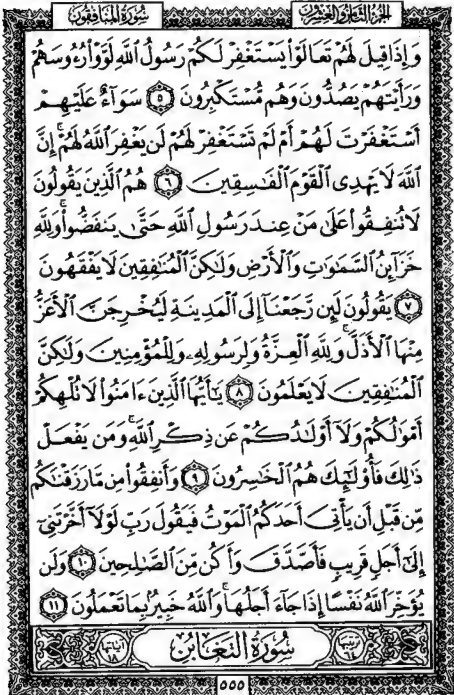 سُورَةُ المُنَافِقُونَ
الجزء الثامن والعشرون
وَإِذَا قِيلَ لَهُمْ تَعَالَوْا۟ يَسْتَغْفِرْ لَكُمْ رَسُولُ ٱللَّهِ لَوَّوْا۟ رُءُوسَهُمْ
وَرَأَيْتَهُمْ يَصُدُّونَ وَهُم مُّسْتَكْبِرُونَ ٥ سَوَآءٌ عَلَيْهِمْ
أَسْتَغْفَرْتَ لَهُمْ أَمْ لَمْ تَسْتَغْفِرْ لَهُمْ لَن يَغْفِرَ ٱللَّهُ لَهُمْ ۚ إِنَّ
ٱللَّهَ لَا يَهْدِى ٱلْقَوْمَ ٱلْفَـٰسِقِينَ ٦ هُمُ ٱلَّذِينَ يَقُولُونَ
لَا تُنفِقُوا۟ عَلَىٰ مَنْ عِندَ رَسُولِ ٱللَّهِ حَتَّىٰ يَنفَضُّوا۟ ۗ وَلِلَّهِ
خَزَآئِنُ ٱلسَّمَـٰوَٰتِ وَٱلْأَرْضِ وَلَـٰكِنَّ ٱلْمُنَـٰفِقِينَ لَا يَفْقَهُونَ
٧ يَقُولُونَ لَئِن رَّجَعْنَآ إِلَى ٱلْمَدِينَةِ لَيُخْرِجَنَّ ٱلْأَعَزُّ
مِنْهَا ٱلْأَذَلَّ ۚ وَلِلَّهِ ٱلْعِزَّةُ وَلِرَسُولِهِۦ وَلِلْمُؤْمِنِينَ وَلَـٰكِنَّ
ٱلْمُنَـٰفِقِينَ لَا يَعْلَمُونَ ٨ يَـٰٓأَيُّهَا ٱلَّذِينَ ءَامَنُوا۟ لَا تُلْهِكُمْ
أَمْوَٰلُكُمْ وَلَآ أَوْلَـٰدُكُمْ عَن ذِكْرِ ٱللَّهِ ۚ وَمَن يَفْعَلْ
ذَٰلِكَ فَأُو۟لَـٰٓئِكَ هُمُ ٱلْخَـٰسِرُونَ ٩ وَأَنفِقُوا۟ مِن مَّا رَزَقْنَـٰكُم
مِّن قَبْلِ أَن يَأْتِىَ أَحَدَكُمُ ٱلْمَوْتُ فَيَقُولَ رَبِّ لَوْلَآ أَخَّرْتَنِىٓ
إِلَىٰٓ أَجَلٍ قَرِيبٍ فَأَصَّدَّقَ وَأَكُن مِّنَ ٱلصَّـٰلِحِينَ ١٠ وَلَن
يُؤَخِّرَ ٱللَّهُ نَفْسًا إِذَا جَآءَ أَجَلُهَا ۚ وَٱللَّهُ خَبِيرٌۢ بِمَا تَعْمَلُونَ ١١
سُورَةُ التَّغَابُنِ
آياتها ١٨
٥٥٥